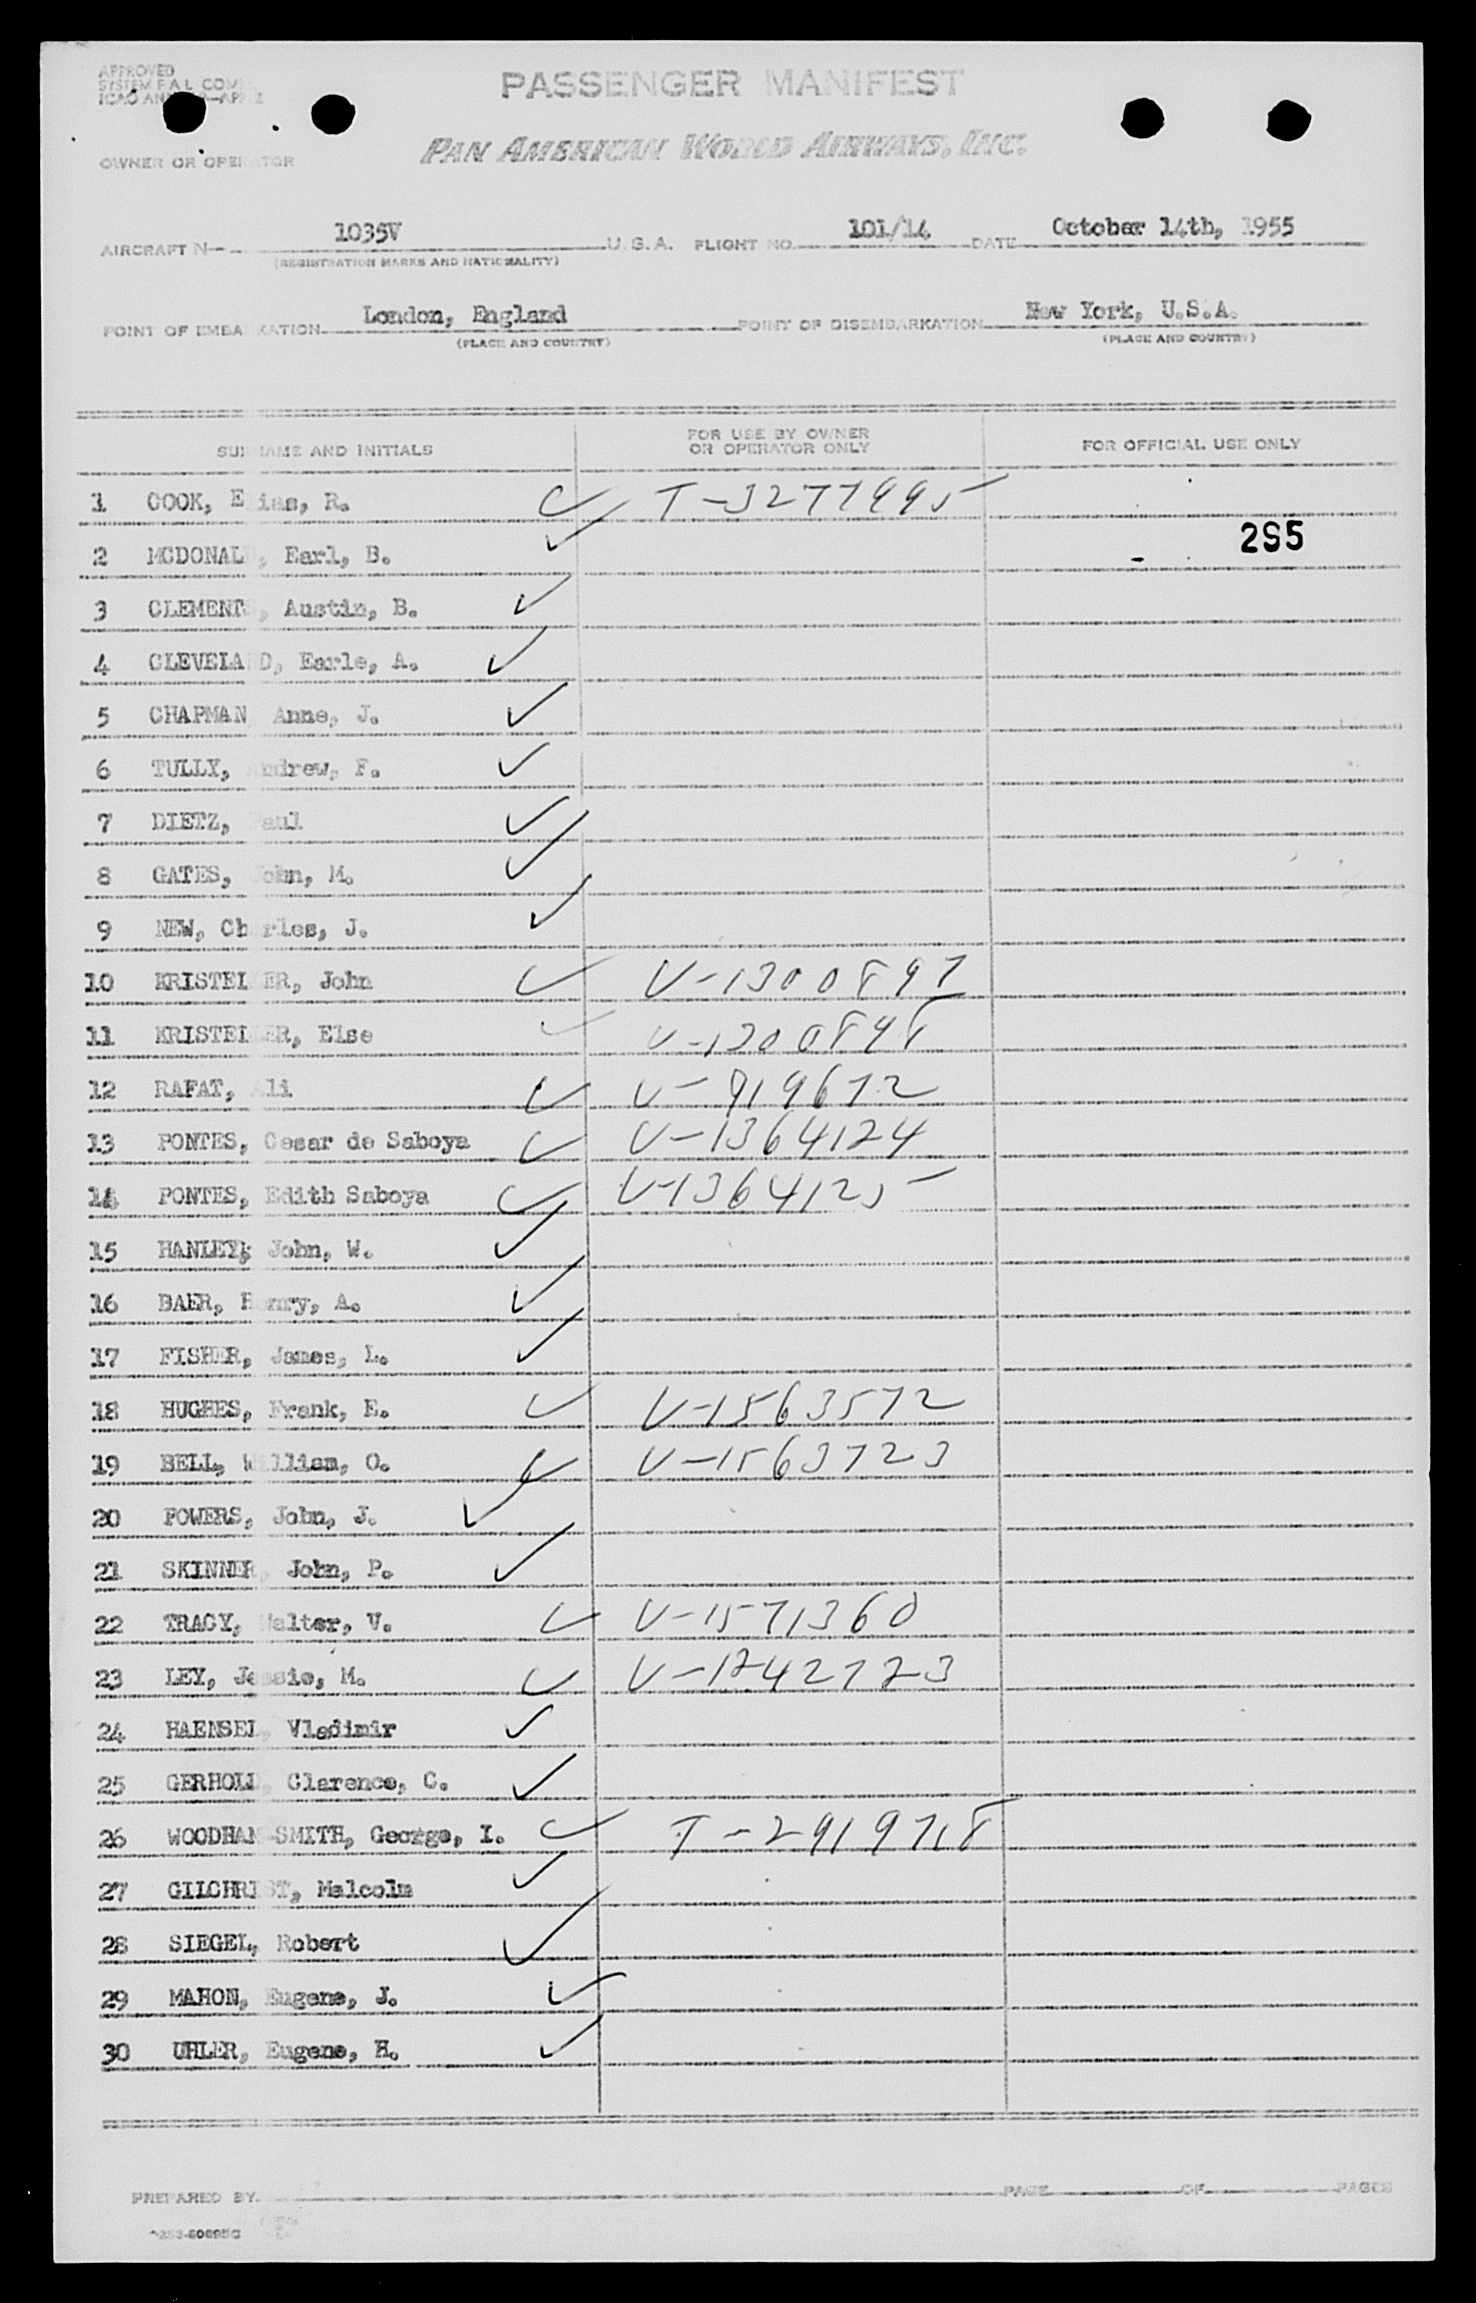 APPROVED
PASSENGER MANIFEST
PAN AMERICAN WORLD AIRWAYS, INC.
OWNER OR OPERATOR
AIRCRAFT N— 1035V U.S.A. FLIGHT NO. 101/14 DATE October 14th, 1955
(REGISTRATION MARKS AND NATIONALITY)
POINT OF EMBARKATION London, England POINT OF DISEMBARKATION New York, U.S.A.
(PLACE AND COUNTRY) (PLACE AND COUNTRY)
SURNAME AND INITIALS FOR USE BY OWNER OR OPERATOR ONLY FOR OFFICIAL USE ONLY
1 COOK, E ias, R. T-3277995
2 MCDONALD, Earl, B. 295
3 CLEMENTS, Austin, B.
4 CLEVELAND, Earle, A.
5 CHAPMAN Anne, J.
6 TULLY, Andrew, F.
7 DIETZ, Paul
8 GATES, John, M.
9 NEW, Charles, J.
10 KRISTELLER, John V-1300897
11 KRISTELLER, Else V-1300898
12 RAFAT, Ali V-919672
13 PONTES, Cesar de Saboya V-1364124
14 PONTES, Edith Saboya V-1364125
15 HANLEY, John, W.
16 BAER, Henry, A.
17 FISHER, James, L.
18 HUGHES, Frank, E. V-1563572
19 BELL, William, O. V-1563723
20 POWERS, John, J.
21 SKINNER, John, P.
22 TRACY, Walter, V. V-1571360
23 LEY, Jessie, M. V-1242723
24 HAENSEL, Vladimir
25 GERHOLD, Clarence, C.
26 WOODHAM-SMITH, George, I. T-2919718
27 GILCHRIST, Malcolm
28 SIEGEL, Robert
29 MAHON, Eugene, J.
30 UHLER, Eugene, H.
PREPARED BY PAGE OF PAGES